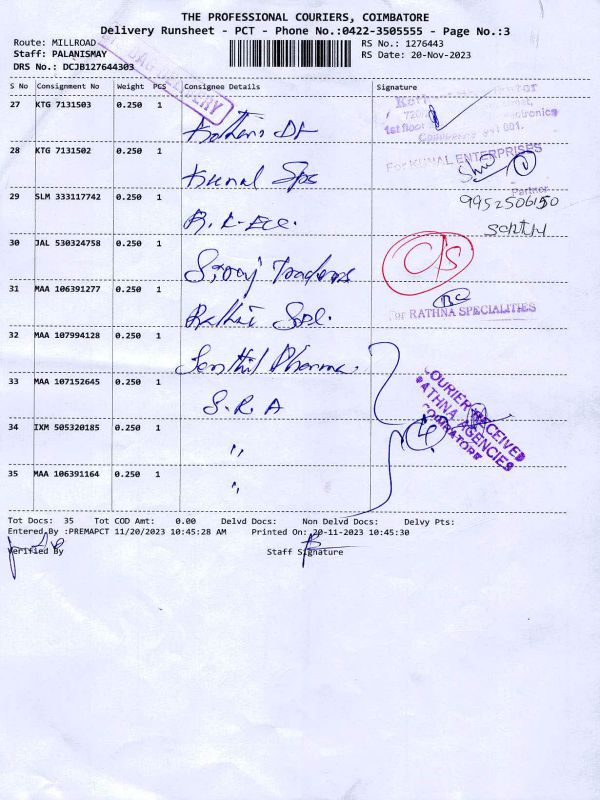 THE PROFESSIONAL COURIERS, COIMBATORE
Delivery Runsheet - PCT - Phone No.:0422-3505555 - Page No.:3
Route: MILLROAD RS No.: 1276443
Staff: PALANISMAY RS Date: 20-Nov-2023
DRS No.: DCJB127644303
DELIVERY
S No Consignment No Weight PCS Consignee Details Signature
27 KTG 7131503 0.250 1
1st floor
28 KTG 7131502 0.250 1 Kunal Spc
For KUNAL ENTERPRISES
Partner
29 SLM 333117742 0.250 1 R. K-Ecc.
9952506150
30 JAL 530324758 0.250 1 Siroj Traders
C/S
31 MAA 106391277 0.250 1 Rathi Spl.
For RATHNA SPECIALITIES
32 MAA 107994128 0.250 1 Senthil Pharma.
33 MAA 107152645 0.250 1 S.R.A
COURIER RECEIVED
RATHNA AGENCIES
COIMBATORE
34 IXM 505320185 0.250 1 ,,
4
35 MAA 106391164 0.250 1 ,,
Tot Docs: 35 Tot COD Amt: 0.00 Delvd Docs: Non Delvd Docs: Delvy Pts:
Entered By :PREMAPCT 11/20/2023 10:45:28 AM Printed On: 20-11-2023 10:45:30
Verified By Staff Signature